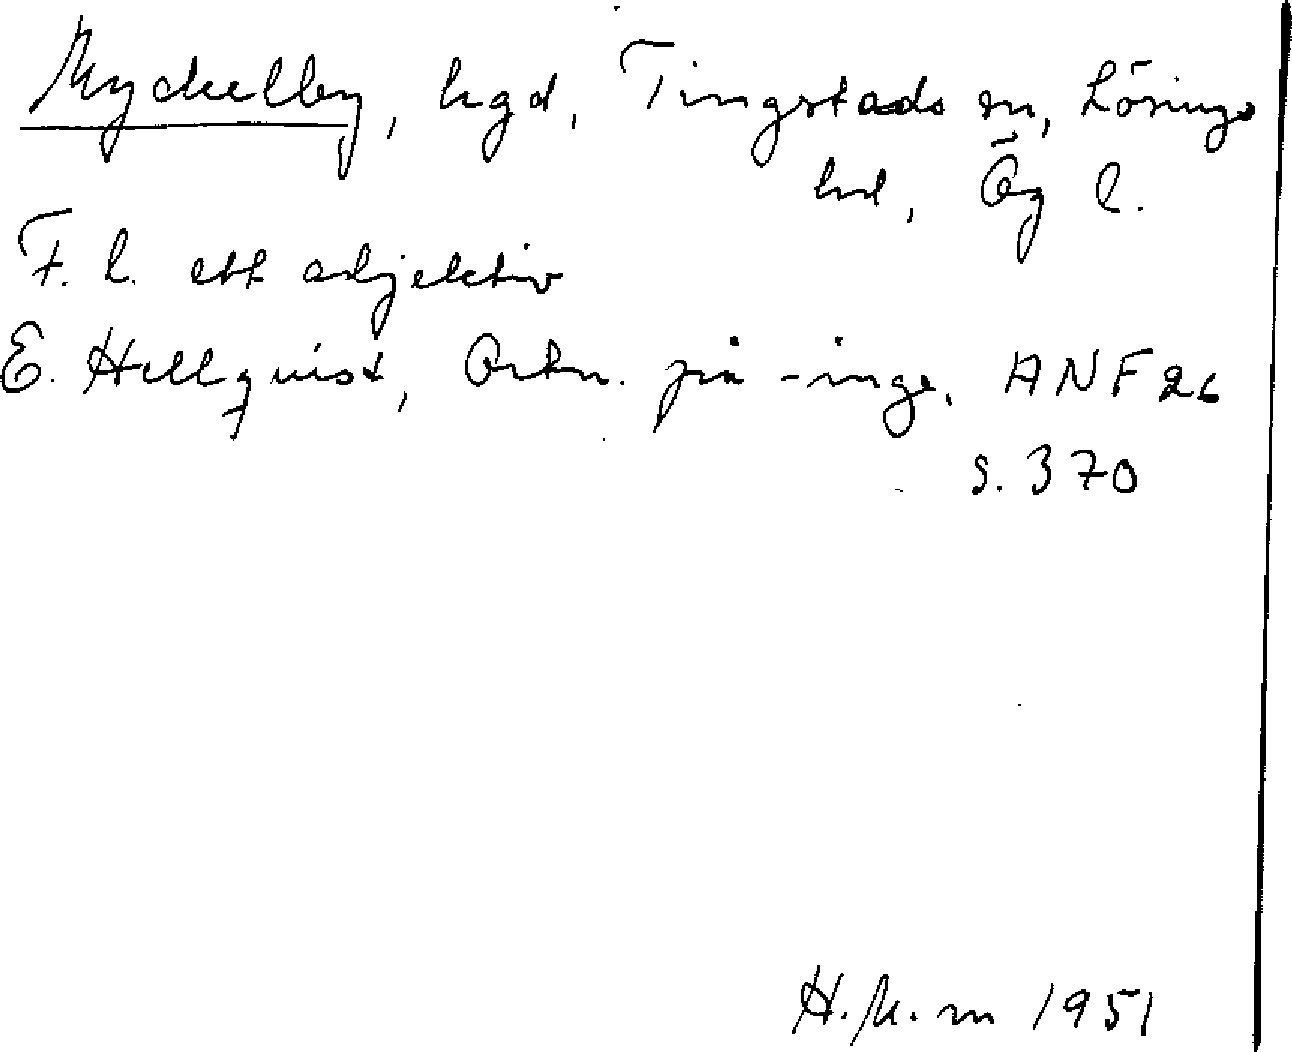 Myckelby, hgd, Tingstads sn, Lösings
hd, Ög l.
F. l. ett adjektiv
E. Hellquist, Ortn. på -inge, ANF 26
s. 370
H. M. m 1951